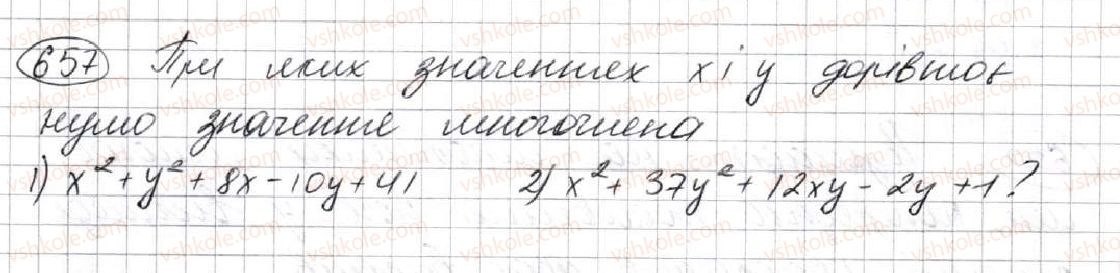 657 При яких значеннях x і y дорівнює
нулю значення многочлена
1) x² + y² + 8x - 10y + 41 2) x² + 37y² + 12xy - 2y + 1?